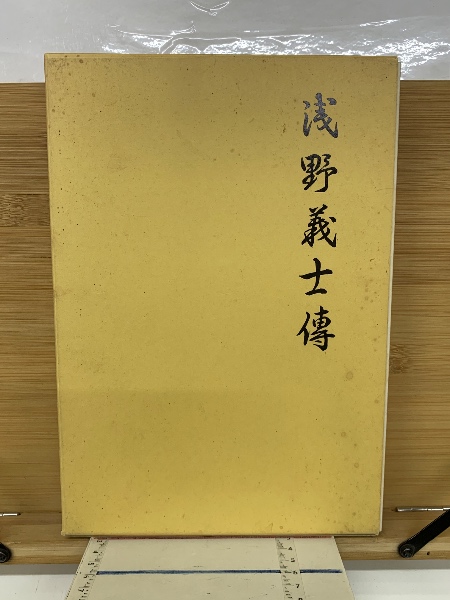 浅野義士傳